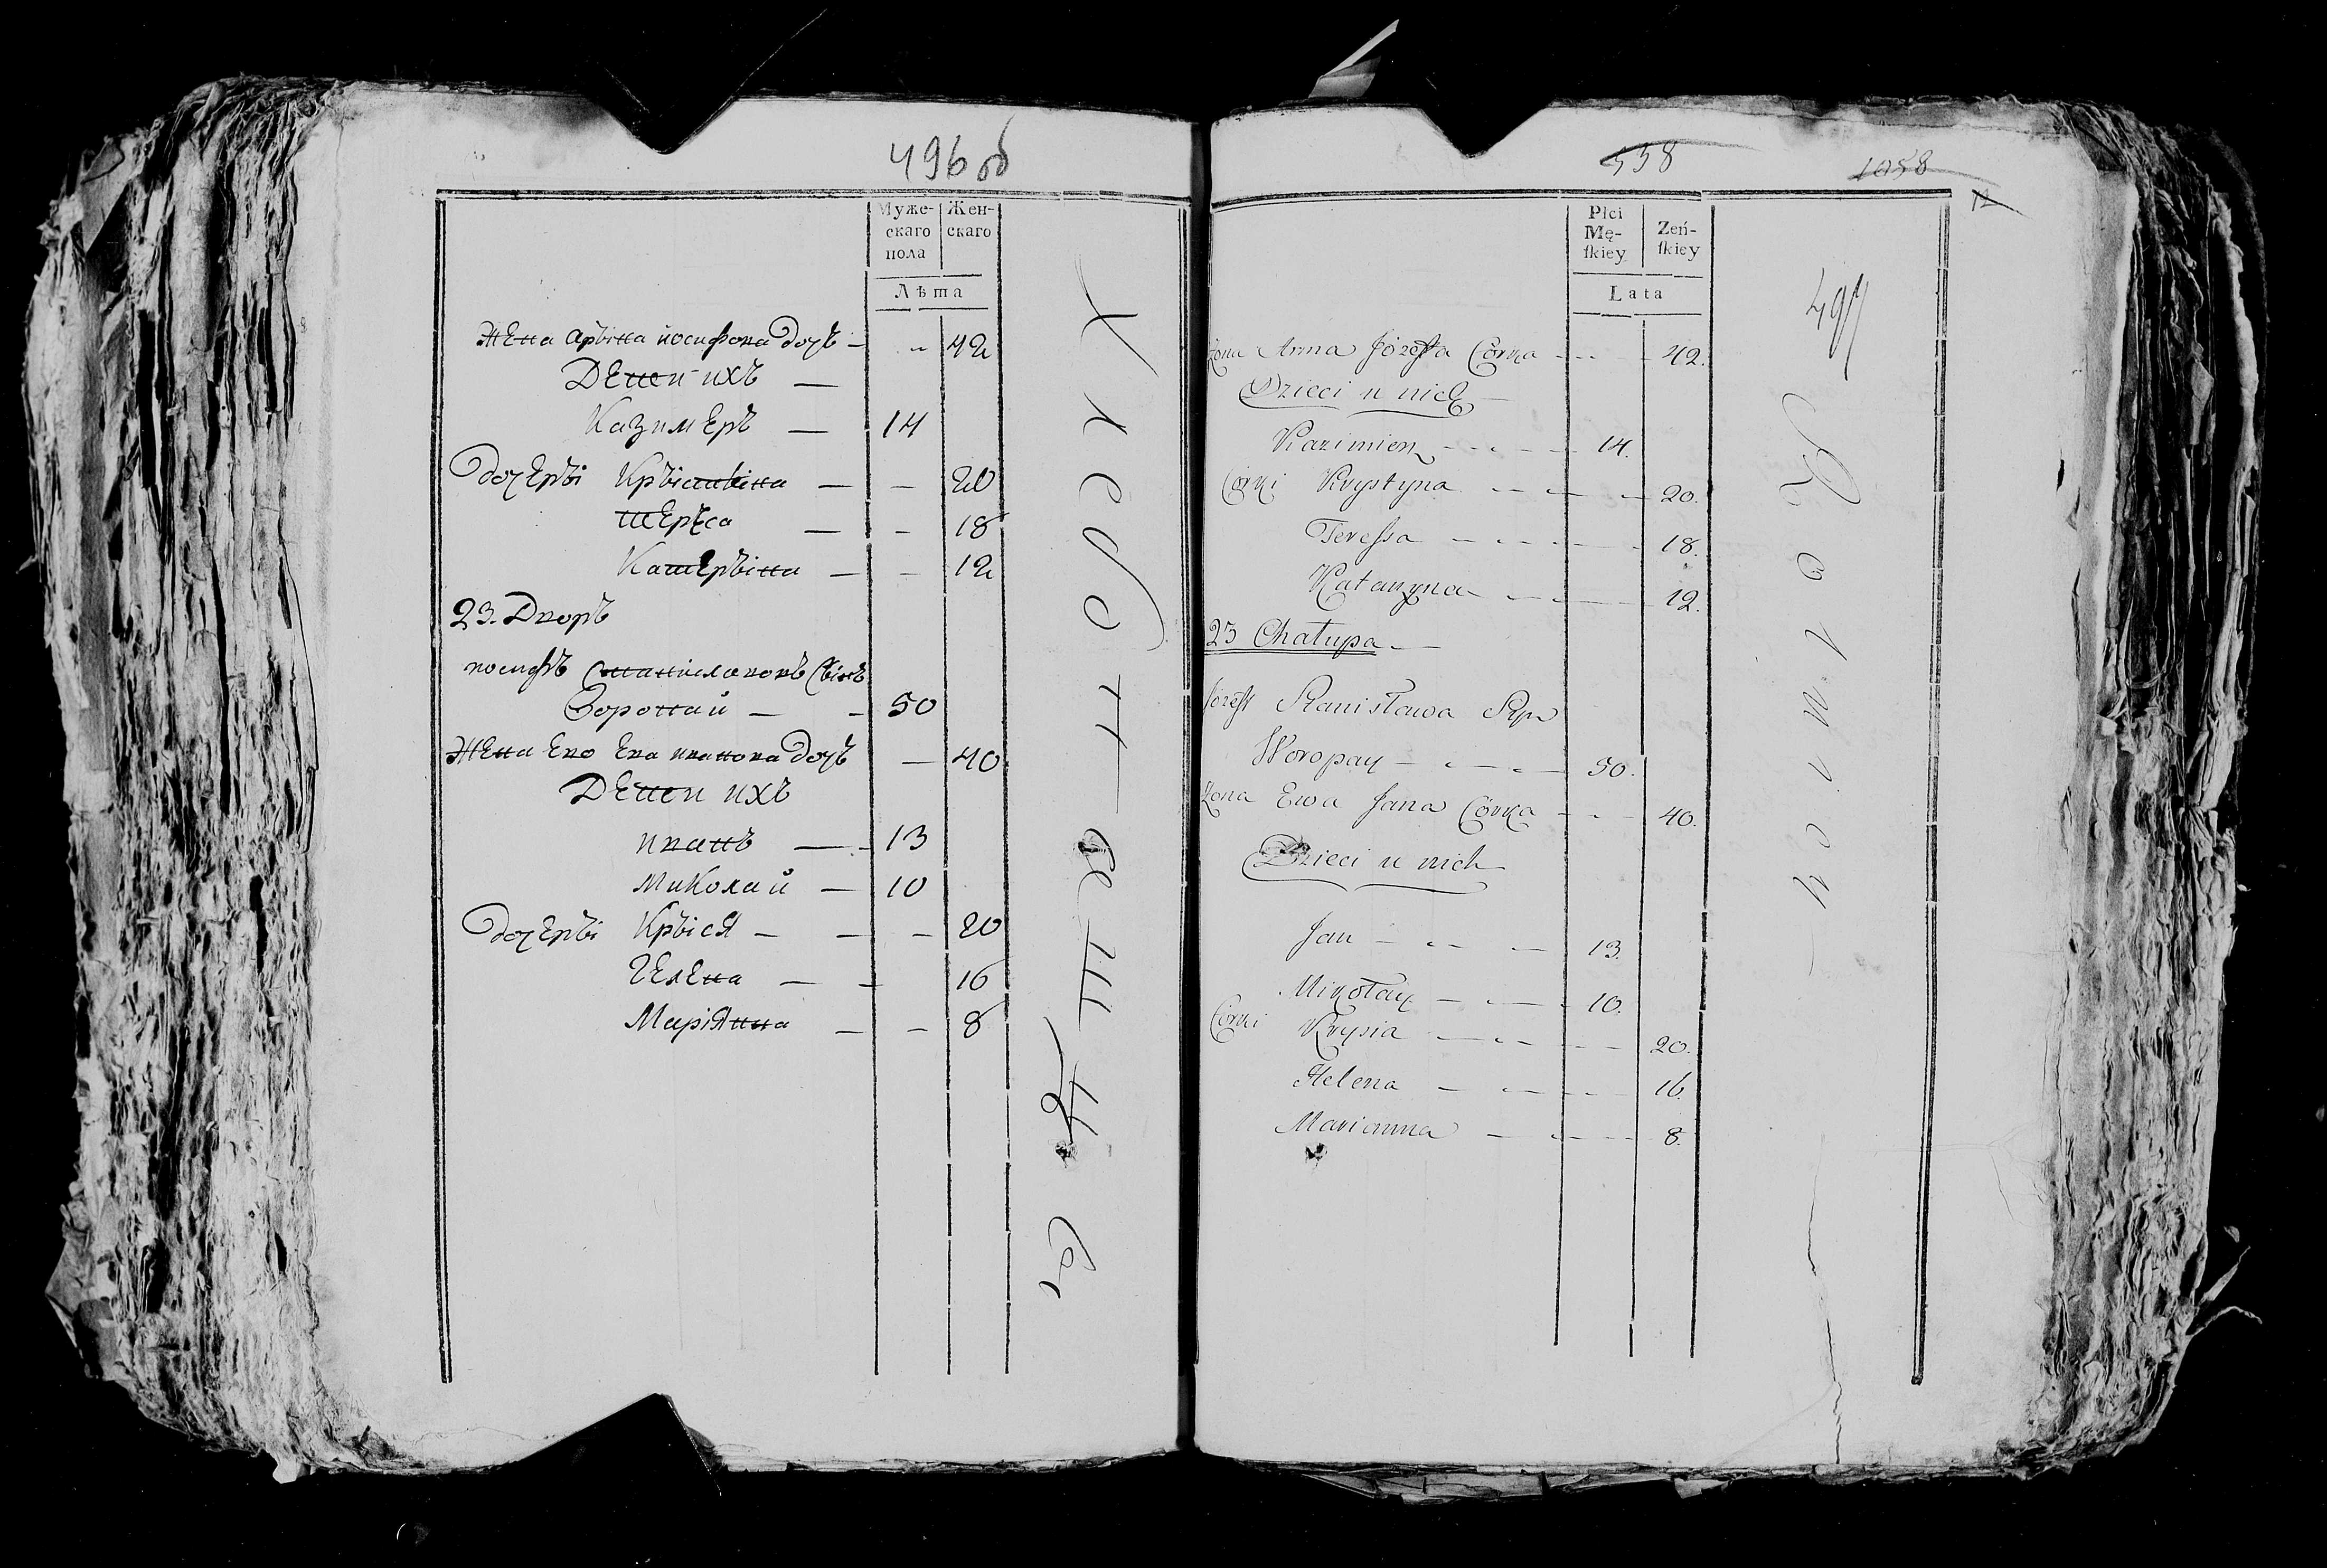 496 об
Муже-
скаго
пола
Жен-
скаго
Лѣта
Жена Анна иосифова дочъ — 42
Дети ихъ —
Казимеръ — 14
Дочеры Крыстына — — 20
Тереса — — 18
Катерына — — 12
23. Дворъ
иосифъ Станиславовъ Сынъ
Воропай — — 50
Жена Ево Ева иванова дочъ — 40
Дети ихъ
иванъ — 13
Миколай — 10
Дочеры Крыся — — — 20
Гелена — — 16
Мариянна — — 8
538
1058
12
497
Płci
Mę-
ſkiey
Zeń-
ſkiey
Lata
Zona Anna Józefa Córka 42.
Dzieci u nich
Kazimierz 14.
Córki Krystyna 20.
Tereſsa 18.
Katarzyna 12.
23 Chałupa
Józeff Stanisława Syn
Woropay 50.
Zona Ewa Jana Córka 40.
Dzieci u nich
Jan 13.
Mikołay 10.
Córki Krysia 20.
Helena 16.
Marianna 8.